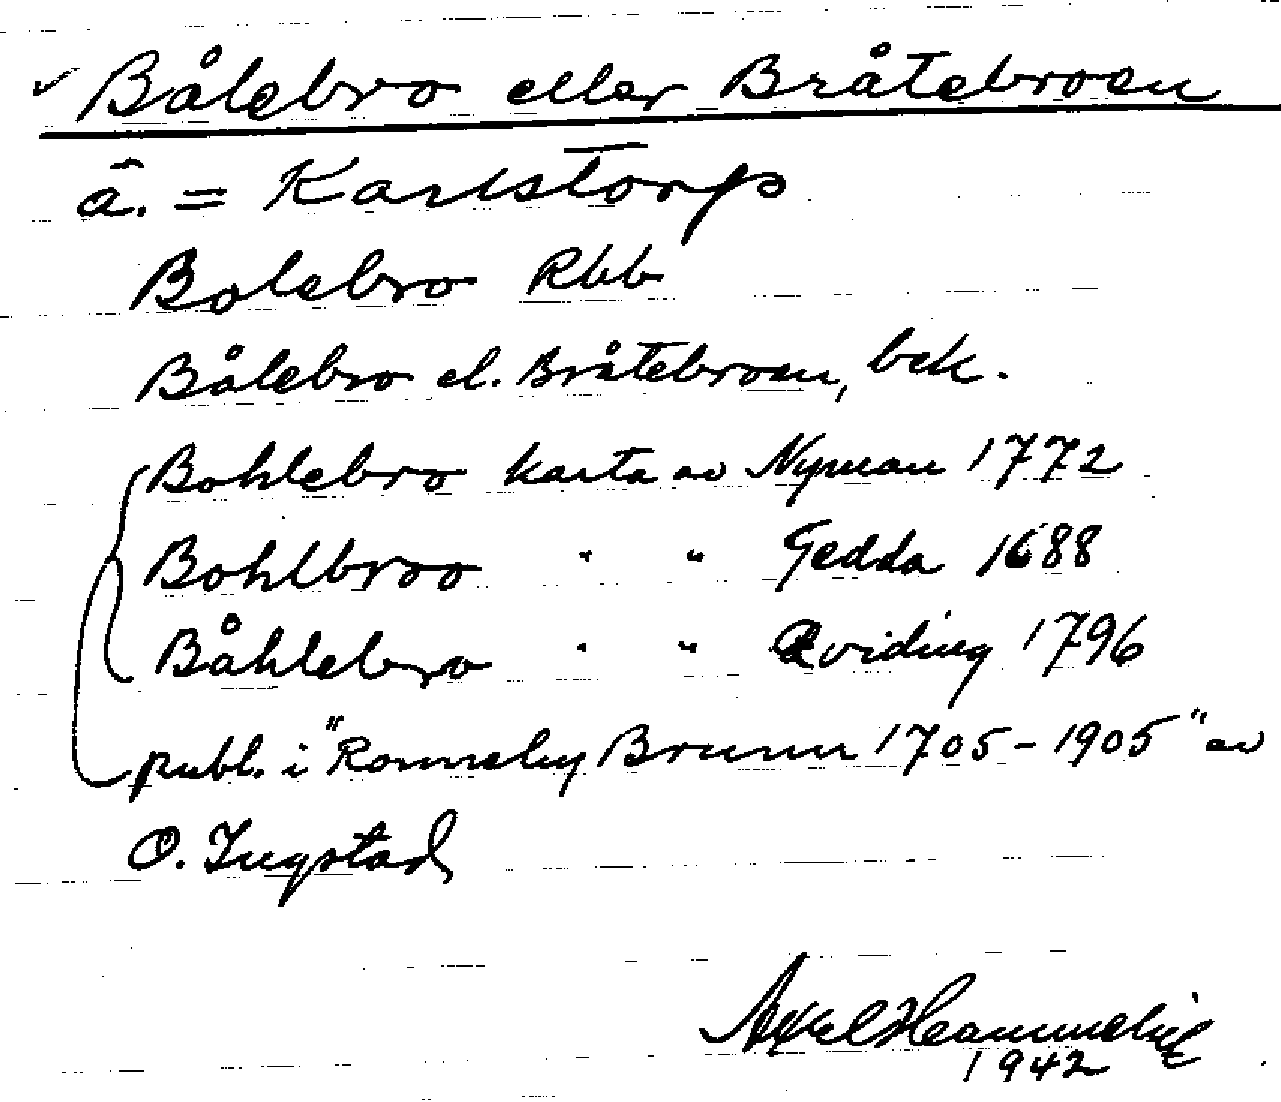 Bålebro eller Bråtebroen
â. = Karlstorp
Bolebro Rbb
Bålebro el. Bråtebroen, bek.
Bohlebro karta av Nyman 1772
Bohlbroo " " Gedda 1688
Båhlebro " " Qviding 1796
publ. i "Ronneby Brunn 1705-1905" av
O. Ingstad
Axel
1942